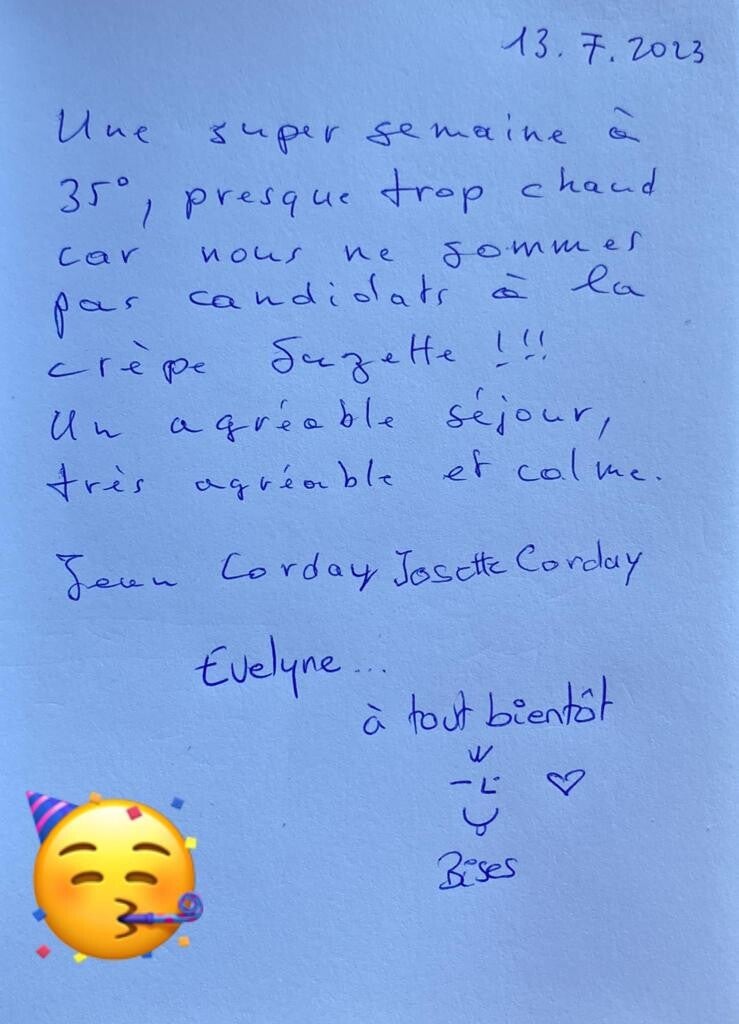 13.7.2023
Une super semaine à
35°, presque trop chaud
car nous ne sommes
pas candidats à la
crèpe Suzette !!!
Un agréable séjour,
très agréable et calme.
Jean Corday Josette Corday
Evelyne...
à tout bientôt
Bises